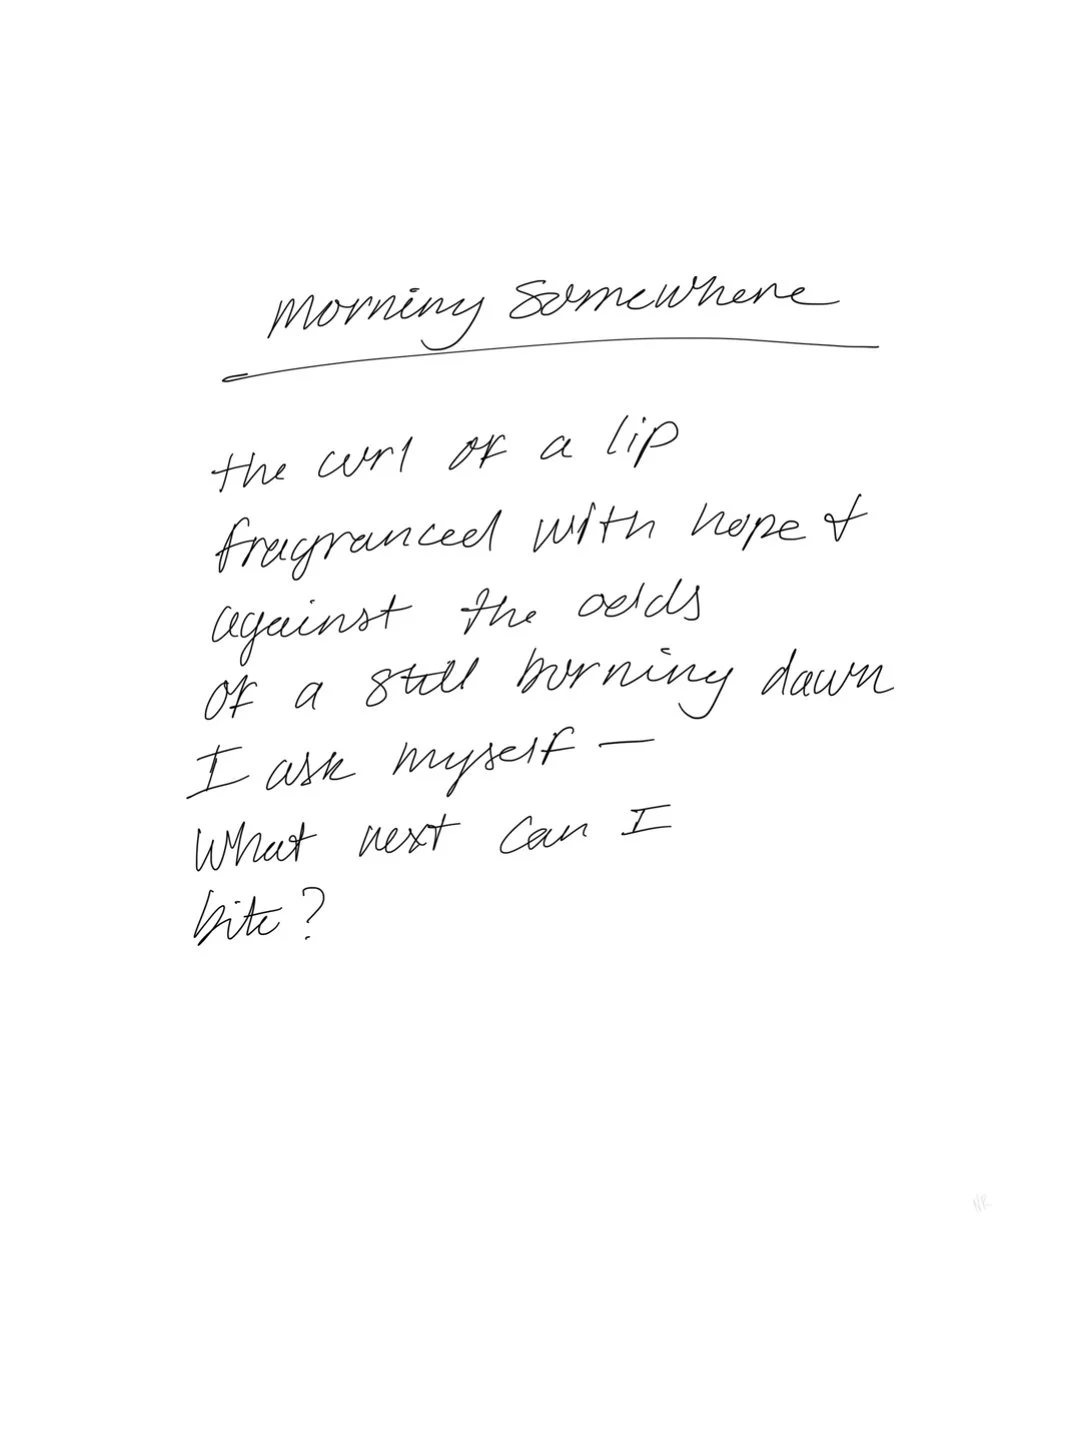 Morning Somewhere
the curl of a lip
fragranced with hope &
against the odds
of a still burning dawn
I ask myself —
What next can I
bite?
NR